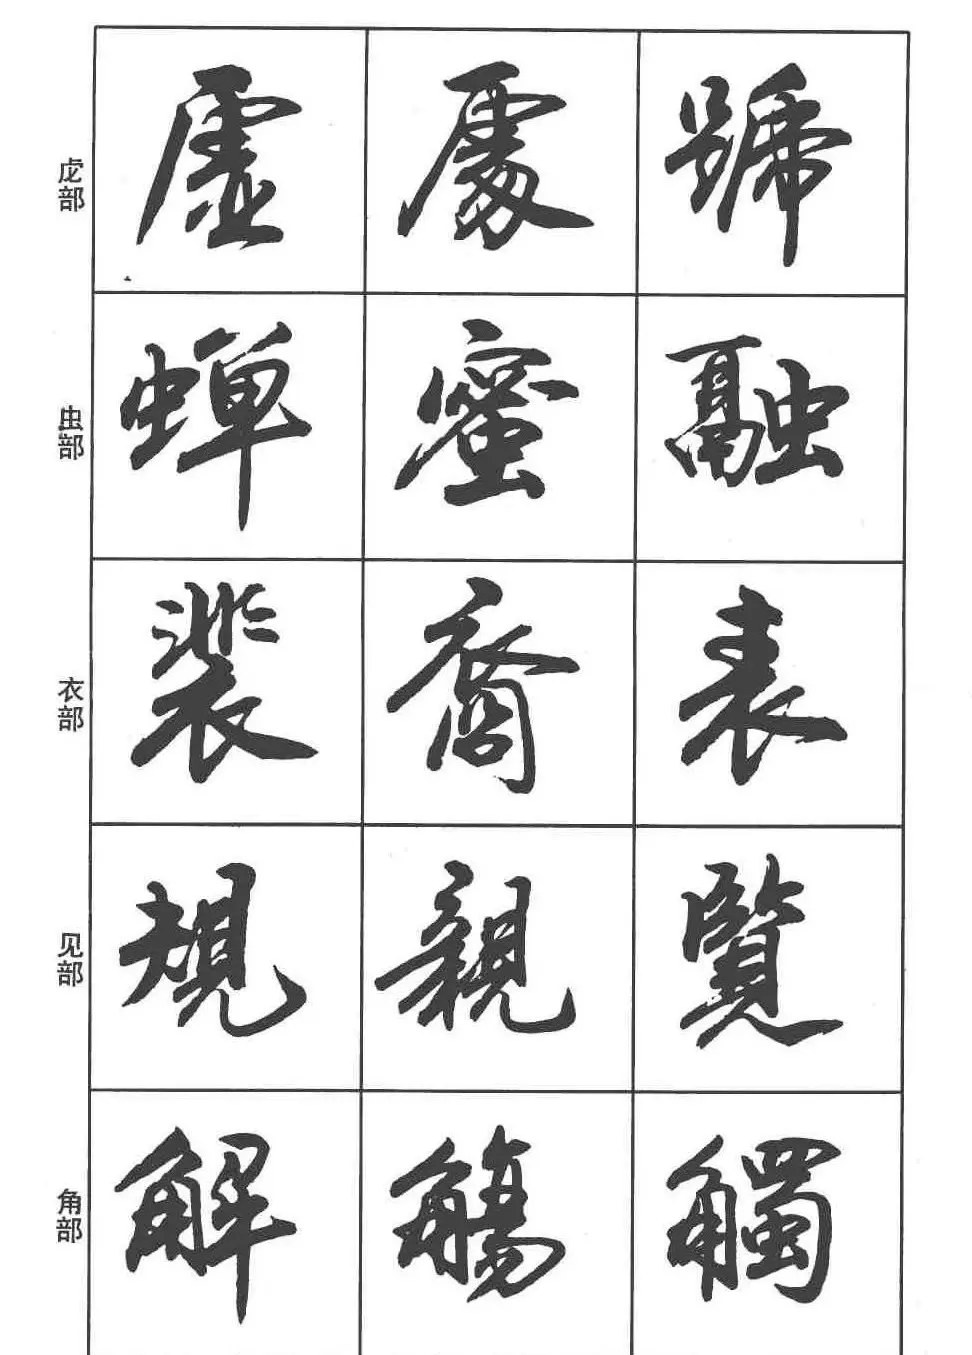 虍部
虛 處 號
虫部
蟬 蜜 融
衣部
裴 裔 表
见部
規 親 覽
角部
解 觴 觸